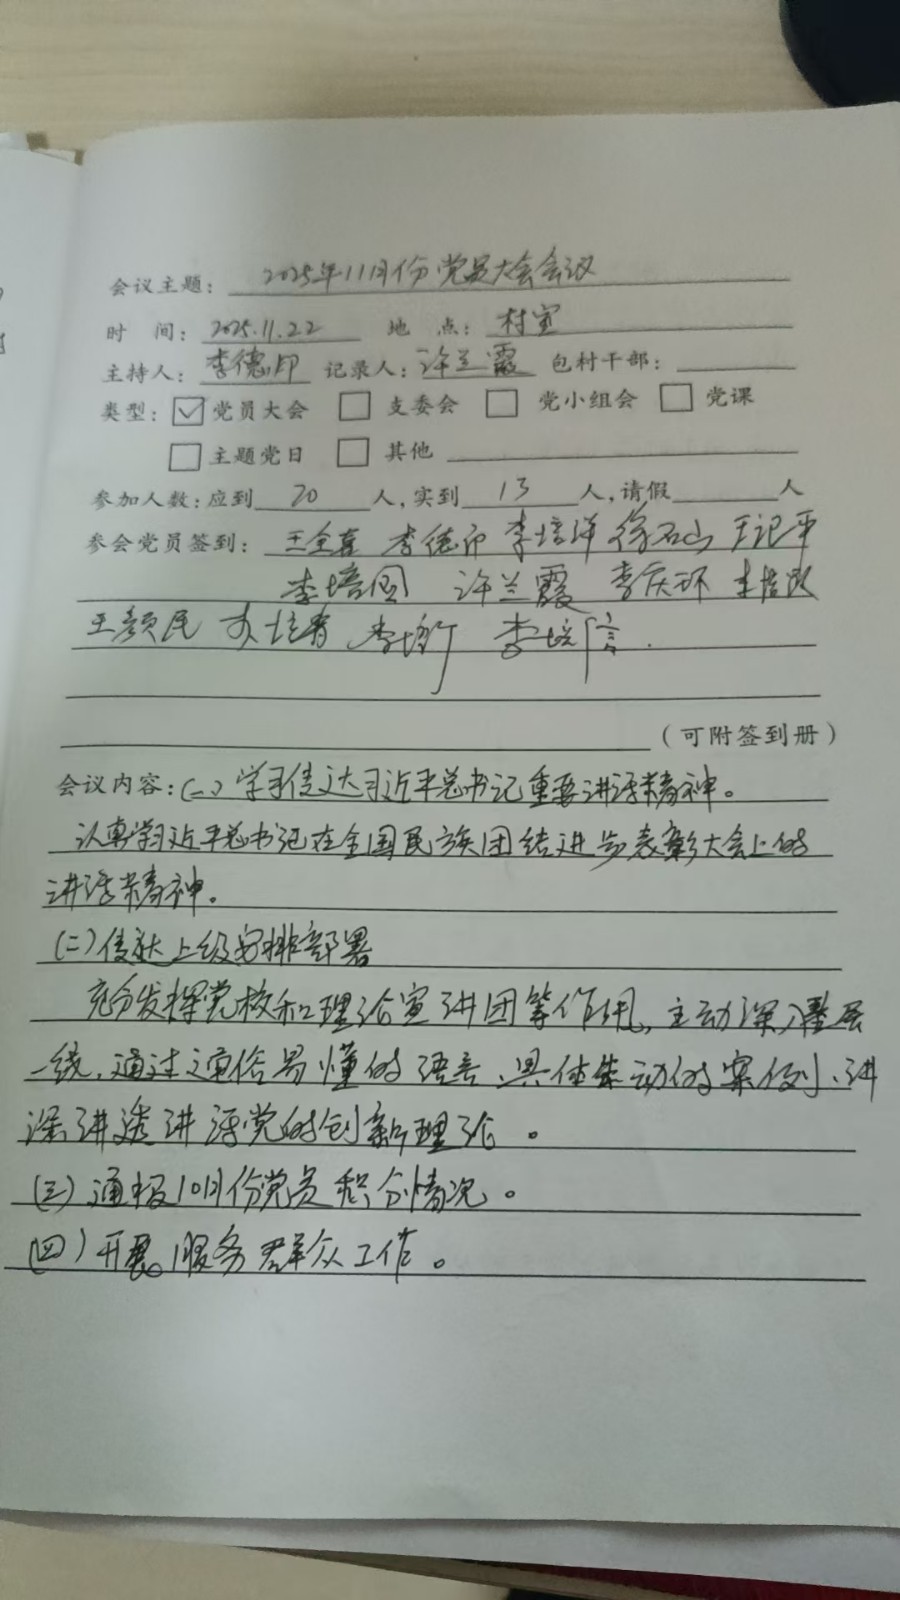 会议主题：2025年11月份党员大会会议
时 间：2025.11.22 地 点：村室
主持人：李德印 记录人：许兰霞 包村干部：
类型：☑党员大会 □支委会 □党小组会 □党课
□主题党日 □其他
参加人数：应到 20 人，实到 13 人，请假 人
参会党员签到：王全喜 李德印 李培洋 徐石山 王记平
李培国 许兰霞 李庆环
王颜民 李培信.
（可附签到册）
会议内容：(一)学习传达习近平总书记重要讲话精神。
认真学习近平总书记在全国民族团结进步表彰大会上的
讲话精神。
(二)传达上级安排部署
充分发挥党校和理论宣讲团等作用，主动深入基层
一线，通过通俗易懂的语言、具体生动的案例、讲
深讲透讲活党的创新理论。
(三)通报10月份党员积分情况。
(四)开展服务群众工作。